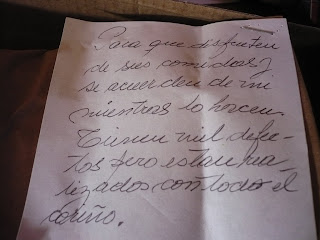 Para que disfruten
de sus comidas y
se acuerden de mi
mientras lo hacen.
Tienen mil defec-
tos pero estan rea-
lizados con todo el
cariño.